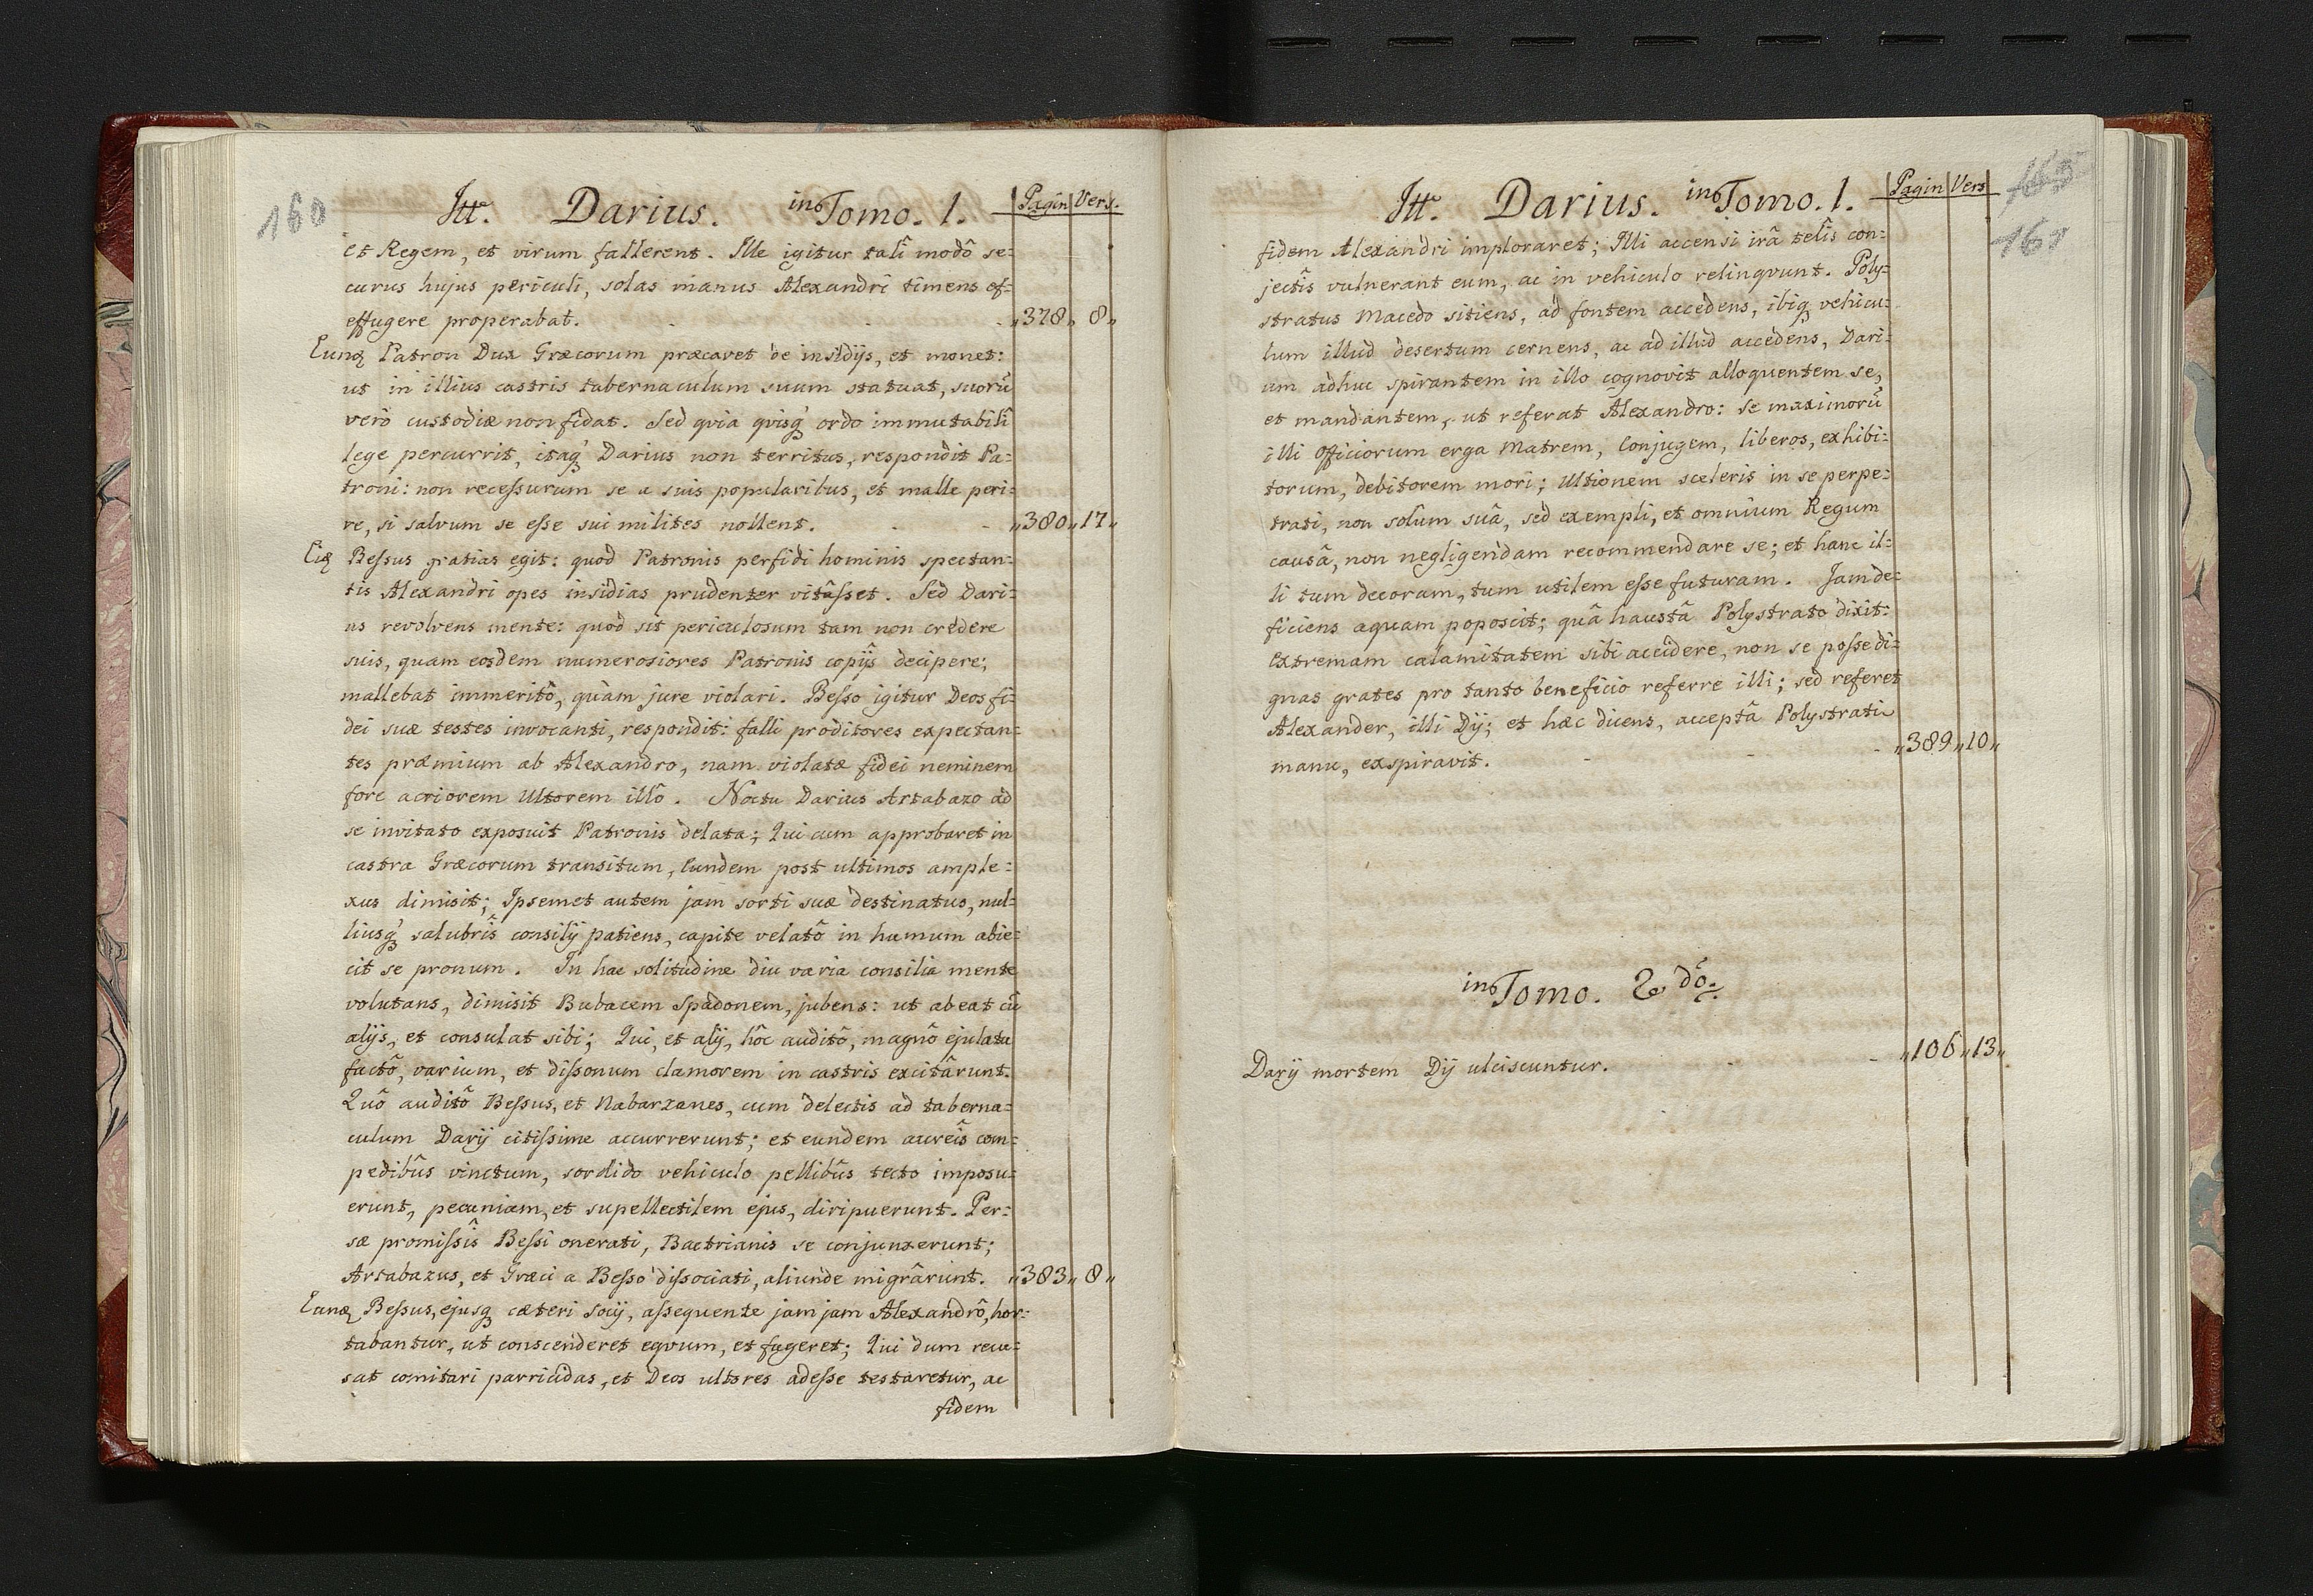 160
Itt. Darius. in Tomo. 1. Pagin Vers.
et Regem, et virum fallerent. Ille igitur talî modô se=
curus hujus periculi, solas manus Alexandri timens ef=
effugere properabat. - - - „378„ 8„
Eunq Patron Dux Græcorum præcavet de insidijs, et monet:
ut in illius castris tabernaculum suum statuat, suorũ
verò custodiæ non fidat. Sed qvia qvisq ordo immutabilî
lege percurrit, itaq Darius non territus, respondit Pa=
troni: non recessurum se a suis popularibus, et malle peri=
re, si salvum se esse sui milites nollent. - - „380„17„
Eiq Bessus gratias egit: quod Patronis perfidi hominis spectan=
tis Alexandri opes insidias prudenter vitâsset. Sed Dari=
us revolvens mente: quod sit periculosum tam non credere
suis, quam eosdem numerosiores Patronis copijs decipere;
mallebat immeritô, quàm jure violari. Besso igitur Deos fi=
dei suæ testes invocanti, respondit: falli proditores expectan=
tes præmium ab Alexandro, nam violatæ fidei neminem
fore acriorem Ultorem illô. Noctu Darius Artabazo ad
se invitato exposuit Patronis delata; Qui cum approbaret in
castra Græcorum transitum, Eundem post ultimos ample=
xus dimisit; Ipsemet autem jam sorti suæ destinatus, nul=
liusq salubris consilij patiens, capite velatô in humum abie=
cit se pronum. In hac solitudine diu varia consilia mente
volutans, dimisit Bubacem Spadonem, jubens: ut abeat cũ
alijs, et consulat sibi; Qui, et alij, hôc auditô, magnô ejulatu
factô, varium, et dissonum clamorem in castris excitârunt.
Quô auditô Bessus, et Nabarzanes, cum delectis ad taberna=
culum Darij citissime accurrerunt; et eundem aureîs com=
pedibûs vinctum, sordido vehiculo pellibûs tecto imposu=
erunt, pecuniam, et supellectilem ejus, diripuerunt. Per=
sæ promissîs Bessi onerati, Bactrianis se conjunxerunt;
Artabazus, et Græci a Besso dissociati, aliunde migrârunt. „383„ 8„
Eunq Bessus, ejusq cæteri socij, assequente jam jam Alexandrô, hor=
tabantur, ut conscenderet eqvum, et fugeret; Qui dum recu=
sat comitari parricidas, et Deos ultores adesse testaretur, ac
fidem
165
161
Itt. Darius. in Tomo. 1. Pagin Vers
fidem Alexandri imploraret; Illi accensi irâ telîs con=
jectîs vulnerant eum, ac in vehiculo relinqvunt. Poly=
stratus Macedo sitiens, ad fontem accedens, ibiq vehicu=
lum illud desertum cernens, ac ad illud accedens, Dari=
um adhuc spirantem in illo cognovit alloquentem se,
et mandantem, ut referat Alexandro: Se maximorũ
illi Officiorum erga Matrem, Conjugem, liberos, exhibi=
torum, debitorem mori; Ultionem sceleris in se perpe=
trati, non solum suâ, sed exempli, et omnium Regum
causâ, non negligendam recommendare se; et hanc il=
li tum decoram, tum utilem esse futuram. Jam de=
ficiens aquam poposcit; quâ haustâ Polystrato dixit:
Extremam calamitatem sibi accidere, non se posse di=
gnas grates pro tanto beneficio referre illi; sed referet
Alexander, illi Dij; et hæc dicens, acceptâ Polystrati
manu, exspiravit. - - - „389„10„
in Tomo. 2do.
Darij mortem Dij ulciscuntur. - - „106„13„